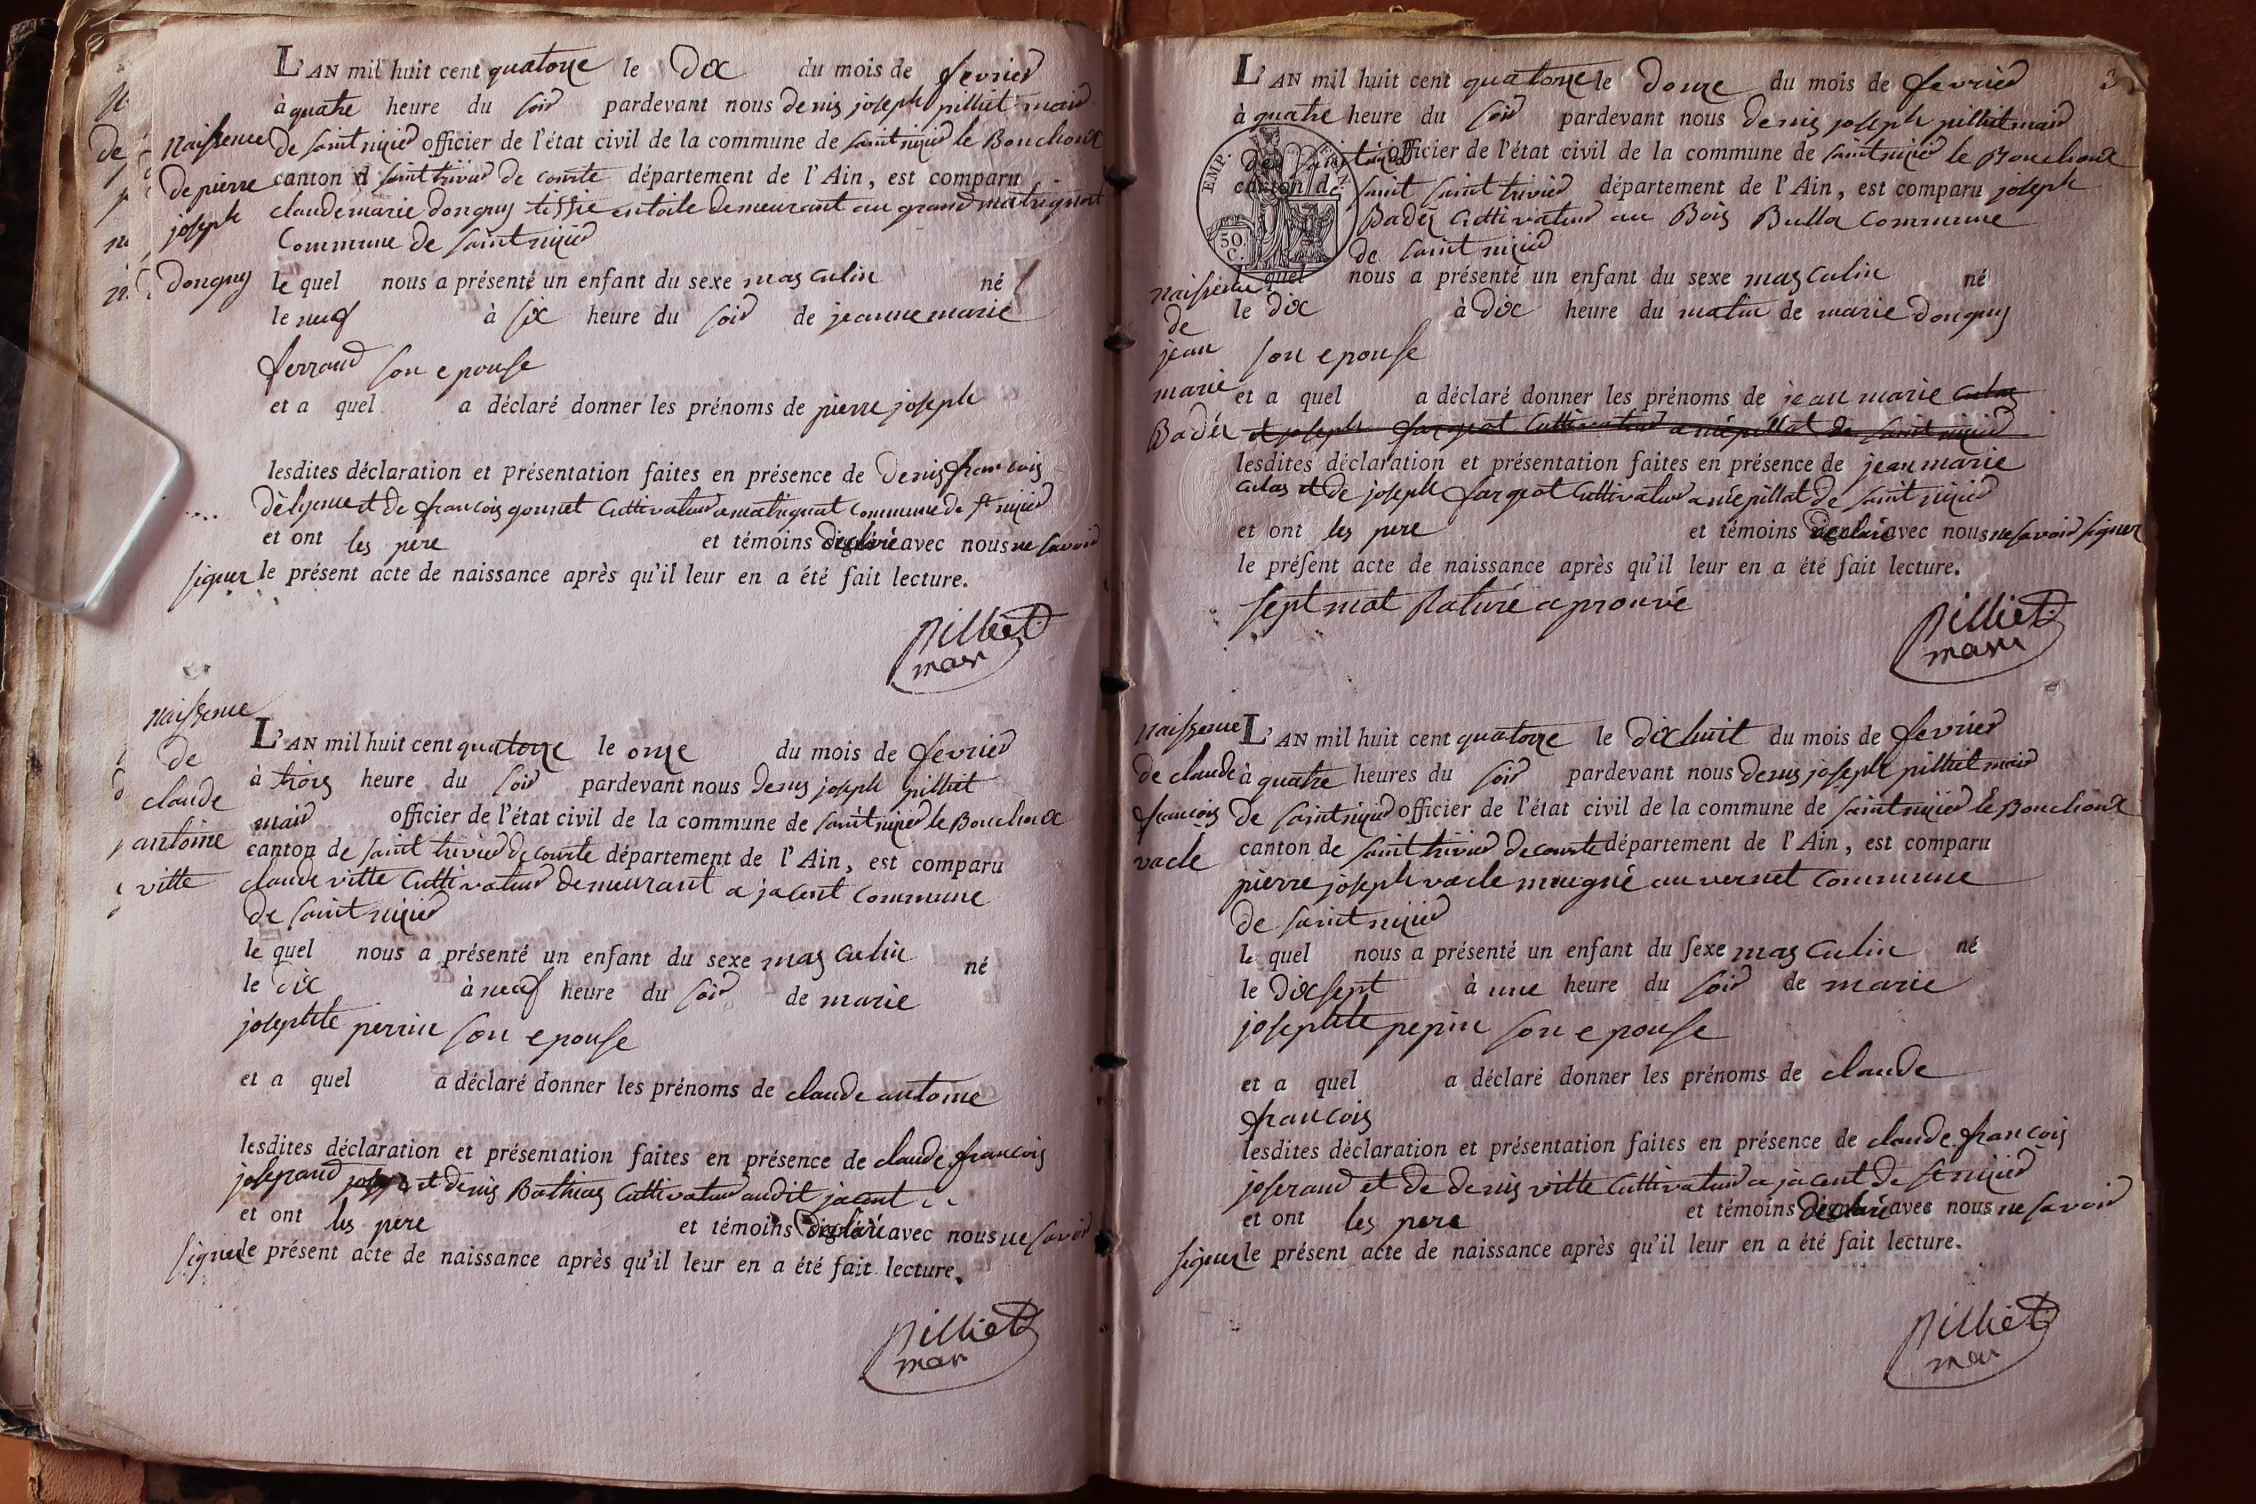 L'AN mil huit cent quatorze le Dix du mois de fevrier
à quatre heure du soir pardevant nous denis joseph pilliet mair
Naissence de saint nizier officier de l'état civil de la commune de saint nizier le Bouchoux
de pierre canton d saint trivier de courte département de l'Ain, est comparu
joseph claude marie donguy tissie en toile demeurant au grand matrignat
Commune de saint nizier
donguy le quel nous a présenté un enfant du sexe masculin né
le neuf à six heure du soir de jeanne marie
ferrand son epouse
et a quel a déclaré donner les prénoms de pierre joseph
lesdites déclaration et présentation faites en présence de Denis francois
et de francois gonnet Cultivateur a matrignat commune de st nizier
et ont les père et témoins declaré avec nous ne savoir
signer le présent acte de naissance après qu'il leur en a été fait lecture.
pilliet
mair
Naissence
de
claude
antoine
ville
L'AN mil huit cent quatorze le onze du mois de fevrier
à trois heure du soir pardevant nous Denis joseph pilliet
mair officier de l'état civil de la commune de saint nizier le Bouchoux
canton de saint trivier de courte département de l'Ain, est comparu
claude ville Cultivateur demeurant a jacent commune
de saint nizier
le quel nous a présenté un enfant du sexe masculin né
le dix à neuf heure du soir de marie
josephte perrin son epouse
et a quel a déclaré donner les prénoms de claude antoine
lesdites déclaration et présentation faites en présence de claude francois
joserand et denis Bathias Cultivateur audit jacent
et ont les père et témoins declaré avec nous ne savoir
signer le présent acte de naissance après qu'il leur en a été fait lecture.
pilliet
mair
3
L'AN mil huit cent quatorze le douze du mois de fevrier
à quatre heure du soir pardevant nous denis joseph pilliet mair
de saint nizier officier de l'état civil de la commune de saint nizier le Bouchoux
canton de saint saint trivier département de l'Ain, est comparu joseph
Badez Cultivateur au Bois Bulla Commune
de saint nizier
EMP. FRAN.
50.
C.
Naissence
de
jean
marie
Badez
quel nous a présenté un enfant du sexe masculin né
le dix à Dix heure du matin de marie donguy
son epouse
et a quel a déclaré donner les prénoms de jean marie culas
et joseph fargeot Cultivateur a niépillat de saint nizier
lesdites déclaration et présentation faites en présence de jean marie
culas et de joseph fargeot Cultivateur a niépillat de saint nizier
et ont les pere et témoins declaré avec nous ne savoir signer
le présent acte de naissance après qu'il leur en a été fait lecture.
sept mot Raturé aprouvé
pilliet
mair
Naissence
de claude
francois
vacle
L'AN mil huit cent quatorze le dix huit du mois de fevrier
à quatre heures du soir pardevant nous denis joseph pilliet mair
de saint nizier officier de l'état civil de la commune de saint nizier le Bouchoux
canton de saint trivier de courte département de l'Ain, est comparu
pierre joseph vacle meugné au vernet commune
de saint nizier
le quel nous a présenté un enfant du sexe masculin né
le dix sept à une heure du soir de marie
josephte pepin son epouse
et a quel a déclaré donner les prénoms de claude
francois
lesdites déclaration et présentation faites en présence de claude francois
joserand et de denis ville Cultivateur a jacent de st nizier
et ont les pere et témoins declaré avec nous ne savoir
signer le présent acte de naissance après qu'il leur en a été fait lecture.
pilliet
mair